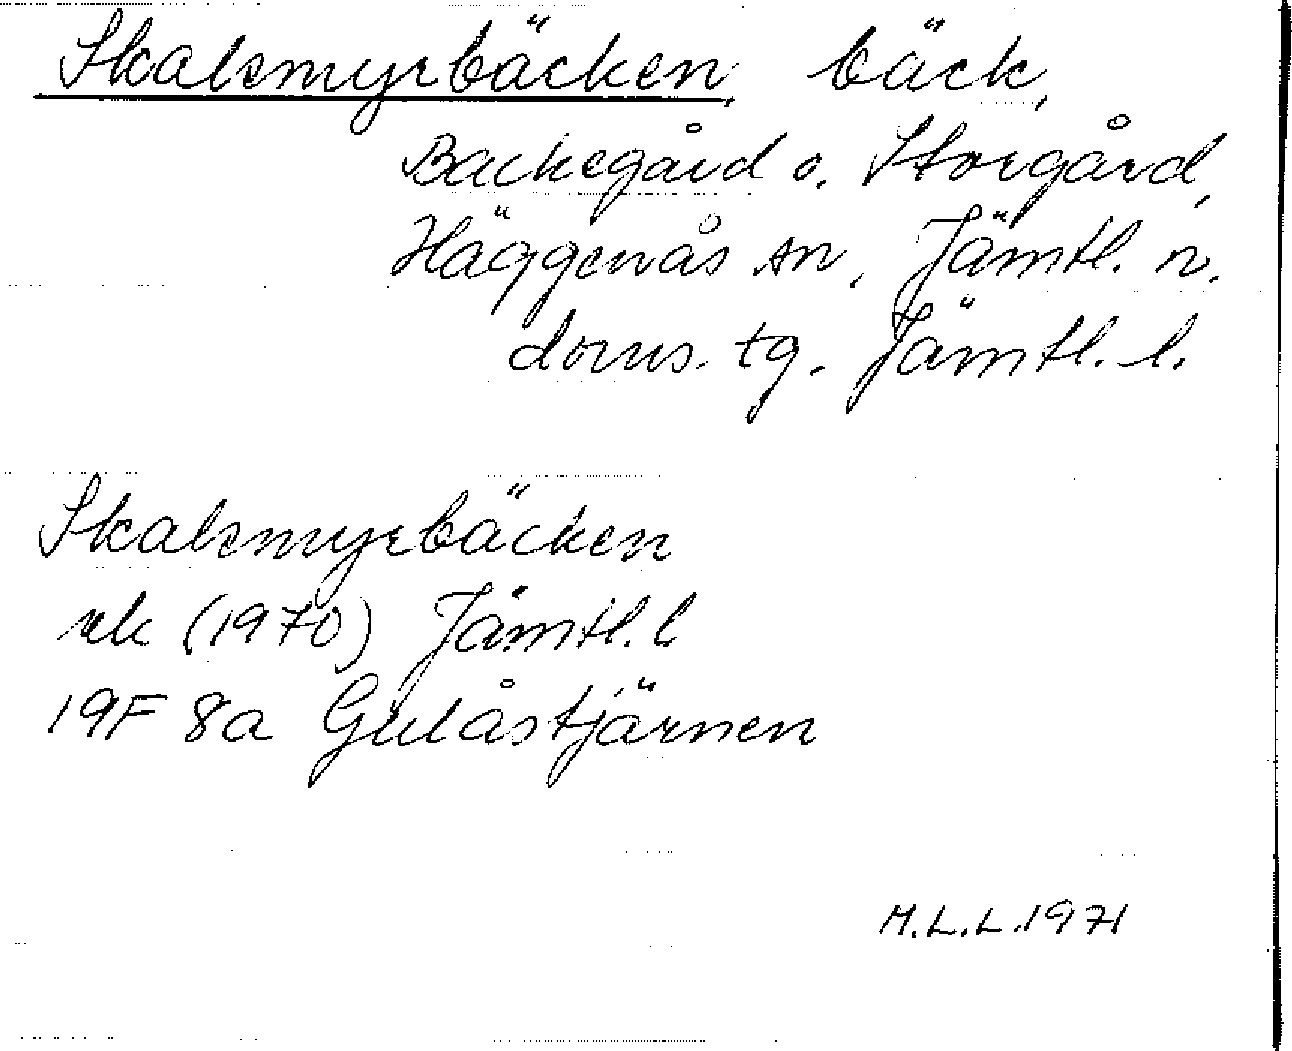 Skalsmyrbäcken, bäck,
Backegård o. Storgård,
Häggenås sn, Jämtl. n.
doms. tg. Jämtl. l.
Skalsmyrbäcken
rk (1970) Jämtl. l
19F 8a Gulåstjärnen
M.L.L. 1971